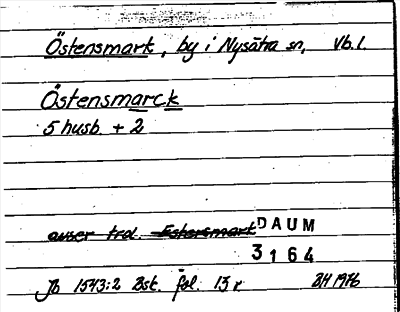 Östensmark, by i Nysätra sn, Vb.l.
Östensmarck
5 husb. + 2
avser trol. Eskersmark DAUM
3164
Jb 1543:2 Bst. fol. 15 r. BH 1976